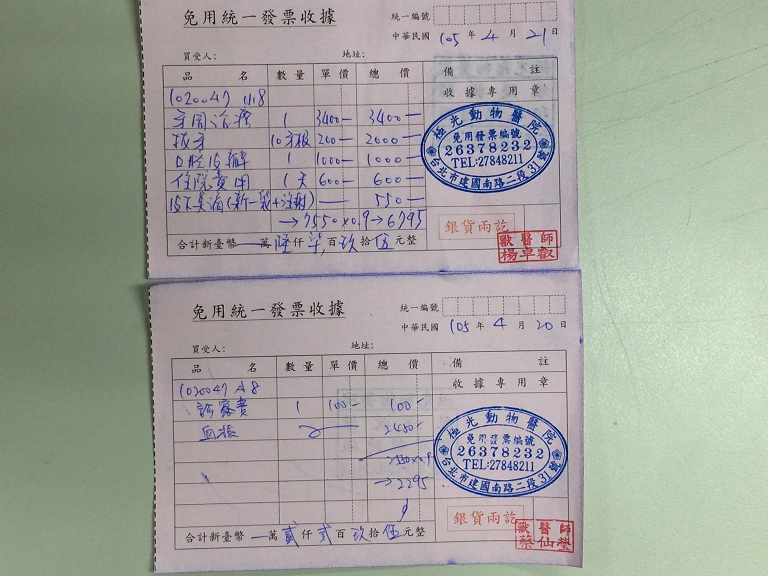 免用統一發票收據
統一編號
中華民國 105 年 4 月 21 日
買受人: 地址:
品 名 數量 單價 總 價 備 註
收據專用章
1020047
牙周治療 1 3400- 3400-
拔牙 10牙根 200- 2000-
口腔皮瓣 1 1000- 1000-
住院費用 1天 600- 600-
550-
→7550x0.9→6795
極光動物醫院
免用發票編號
26378232
TEL:27848211
台北市建國南路二段31號
銀貨兩訖
獸醫師
楊卓叡
合計新臺幣 萬 陸 仟 柒 百 玖 拾 伍 元整
免用統一發票收據
統一編號
中華民國 105 年 4 月 20 日
買受人: 地址:
品 名 數量 單價 總 價 備 註
收據專用章
1020047
診察費 1 100- 100-
血檢 2450-
→2295
極光動物醫院
免用發票編號
26378232
TEL:27848211
台北市建國南路二段31號
銀貨兩訖
獸醫師
蔡仙瑩
合計新臺幣 萬 貳 仟 貳 百 玖 拾 伍 元整